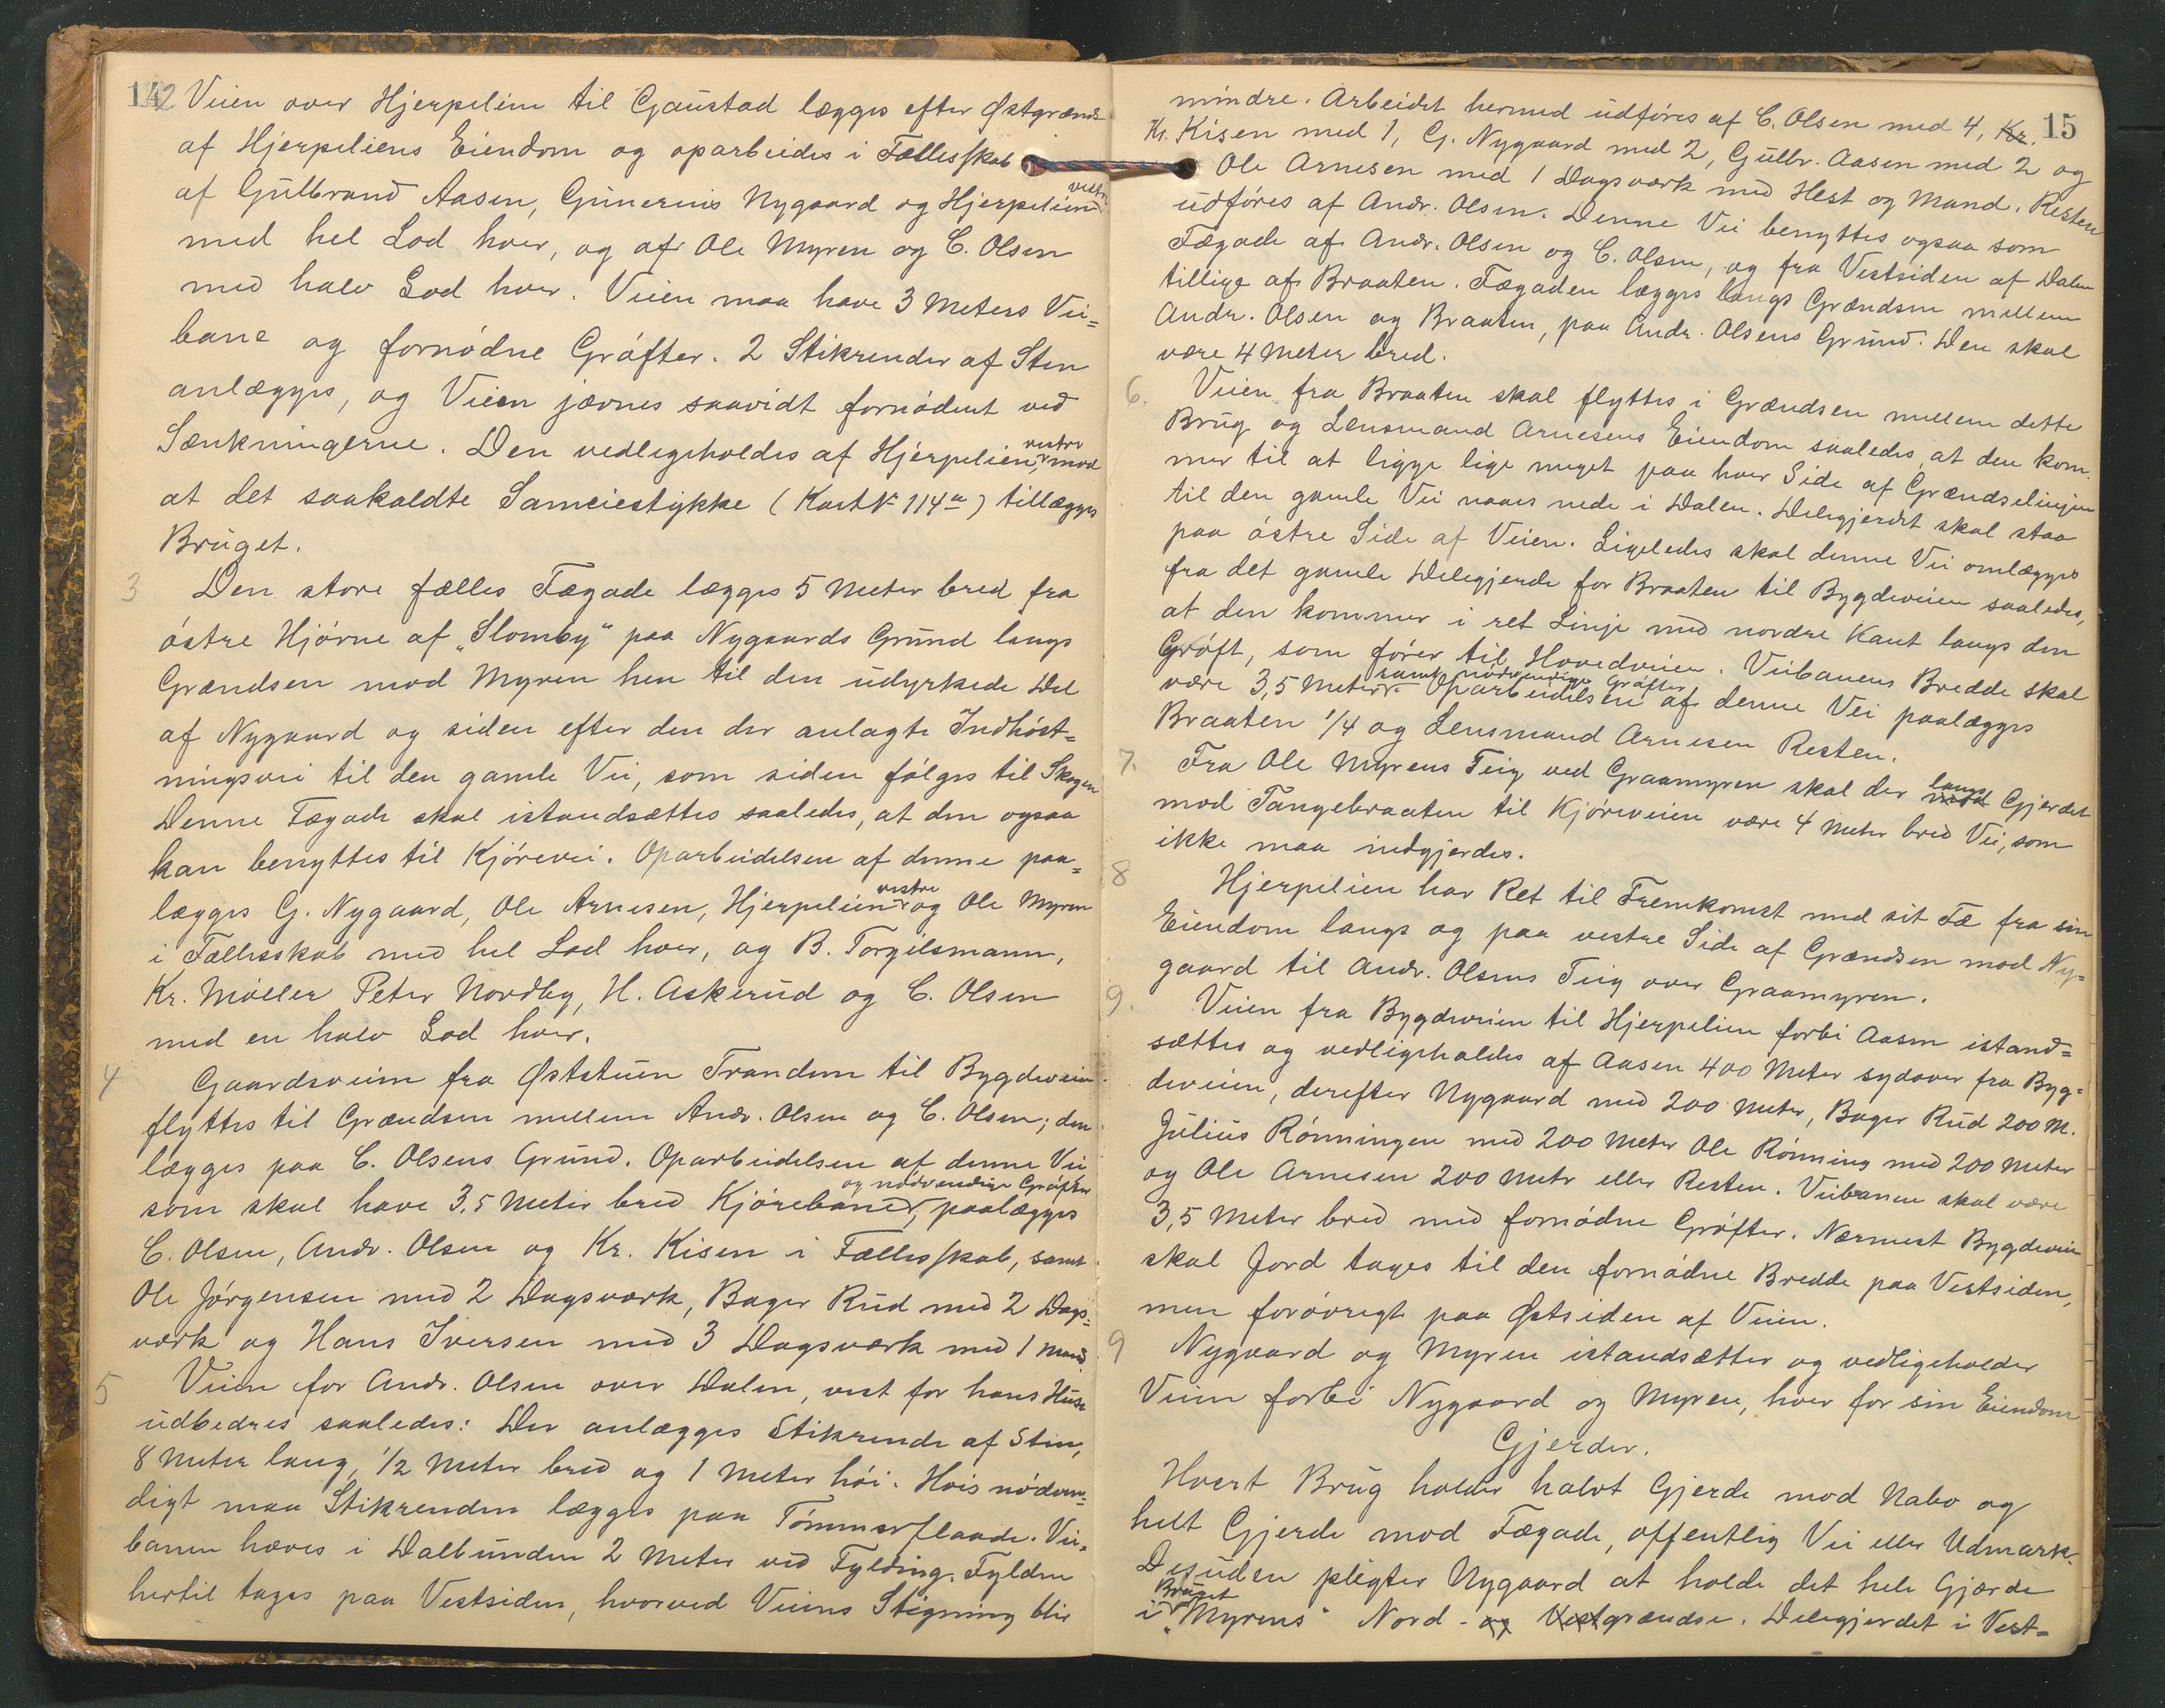 14
2 Veien over Hjerpelien til Gaustad lægges efter Østgrændse
af Hjerpeliens Eiendom og oparbeides i Fællesskab
af Gulbrand Aasen, Gunerius Nygaard og Hjerpelien vestre
med hel Lod hver, og af Ole Myren og C. Olsen
med halv Lod hver. Veien maa have 3 Meters Vei=
bane og fornødne Grøfter. 2 Stikrender af Sten
anlægges, og Veien jævnes saavidt fornødent ved
Sænkningerne. Den vedligeholdes af Hjerpelien, vestre mod
at det saakaldte Sameiestykke (Kart № 114a) tillægges
Bruget.
3 Den store fælles Fægade lægges 5 Meter bred fra
østre Hjørne af „Slomby“ paa Nygaards Grund langs
Grændsen mod Myren hen til den udyrkede Del
af Nygaard og siden efter den der anlagte Indhøst=
ningsvei til den gamle Vei, som siden følges til Skogen
Denne Fægade skal istandsættes saaledes, at den ogsaa
kan benyttes til Kjørevei. Oparbeidelsen af denne paa=
lægges G. Nygaard, Ole Arnesen, Hjerpelien vestre og Ole Myren
i Fællesskab med hel Lod hver, og B. Torgilsmann,
Kr. Møller Peter Nordby, H. Askerud og C. Olsen
med en halv Lod hver.
4 Gaardsveien fra Øststuen Trandum til Bygdeveien
flyttes til Grændsen mellem Andr. Olsen og C. Olsen; den
lægges paa C. Olsens Grund. Oparbeidelsen af denne Vei
som skal have 3,5 Meter bred Kjørebane og nødvendige Grøfter, paalægges
C. Olsen, Andr. Olsen og Kr. Kisen i Fællesskab, samt
Ole Jørgensen med 2 Dagsværk, Bager Rud med 2 Dags=
værk og Hans Iversen med 3 Dagsværk med 1 Mand.
5 Veien for Andr. Olsen over Dalen, vest for hans Huse
udbedres saaledes: Der anlægges Stikrende af Sten,
8 Meter lang, 1/2 Meter bred og 1 Meter høi. Hvis nødven=
digt maa Stikrenden lægges paa Tømmerflaade. Vei=
banen hæves i Dalbunden 2 Meter ved Fylding. Fylden
hertil tages paa Vestsiden, hvorved Veiens Stigning blir
15
mindre. Arbeidet hermed udføres af C. Olsen med 4, Kr.
Kr. Kisen med 1, G. Nygaard med 2, Gulbr. Aasen med 2 og
Ole Arnesen med 1 Dagsværk med Hest og Mand. Resten
udføres af Andr. Olsen. Denne Vei benyttes ogsaa som
Fægade af Andr. Olsen og C. Olsen, og fra Vestsiden af Dalen
tillige af Braaten. Fægaden lægges langs Grændsen mellem
Andr. Olsen og Braaten, paa Andr. Olsens Grund. Den skal
være 4 Meter bred.
6. Veien fra Braaten skal flyttes i Grændsen mellem dette
Brug og Lensmand Arnesens Eiendom saaledes, at den kom=
mer til at ligge lige meget paa hver Side af Grændselinjen
til den gamle Vei naaes nede i Dalen. Delegjerdet skal staa
paa østre Side af Veien. Ligeledes skal denne Vei omlægges
fra det gamle Delegjerde for Braaten til Bygdeveien saaledes,
at den kommer i ret Linje med nordre Kant langs den
Grøft, som fører til Hovedveien. Veibanens Bredde skal
være 3,5 Meter samt nødvendige Grøfter. Oparbeidelsen af denne Vei paalægges
Braaten 1/4 og Lensmand Arnesen Resten.
7. Fra Ole Myrens Teig ved Graamyren skal der mod langs Gjerdet
mod Tangebraaten til Kjøreveien være 4 Meter bred Vei, som
ikke maa indgjerdes.
8 Hjerpelien har Ret til Fremkomst med sit Fæ fra sin
Eiendom langs og paa vestre Side af Grændsen mod Ny=
gaard til Andr. Olsens Teig over Graamyren.
9. Veien fra Bygdeveien til Hjerpelien forbi Aasen istand=
sættes og vedligeholdes af Aasen 400 Meter sydover fra Byg=
deveien, derefter Nygaard med 200 Meter, Bager Rud 200 M.
Julius Rønningen med 200 Meter Ole Rønning med 200 Meter
og Ole Arnesen 200 Metr eller Resten. Veibanen skal være
3,5 Meter bred med fornødne Grøfter. Nærmest Bygdeveien
skal Jord tages til den fornødne Bredde paa Vestsiden,
men forøvrigt paa Østsiden af Veien.
9 Nygaard og Myren istandsætter og vedligeholder
Veien forbi Nygaard og Myren, hver for sin Eiendom
Gjerder.
Hvert Brug holder halvt Gjerde mod Nabo og
helt Gjerde mod Fægade, offentlig Vei eller Udmark.
Desuden pligter Nygaard at holde det hele Gjærde
i Bruget „Myrens“ Nord- og Vestgrændse. Delegjerdet i Vest=